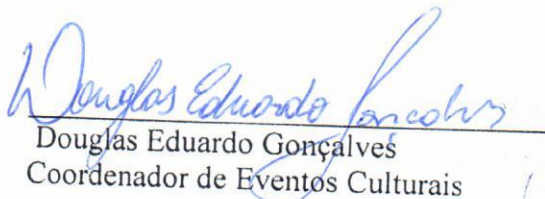 Douglas Eduardo Gonçalves
Douglas Eduardo Gonçalves
Coordenador de Eventos Culturais